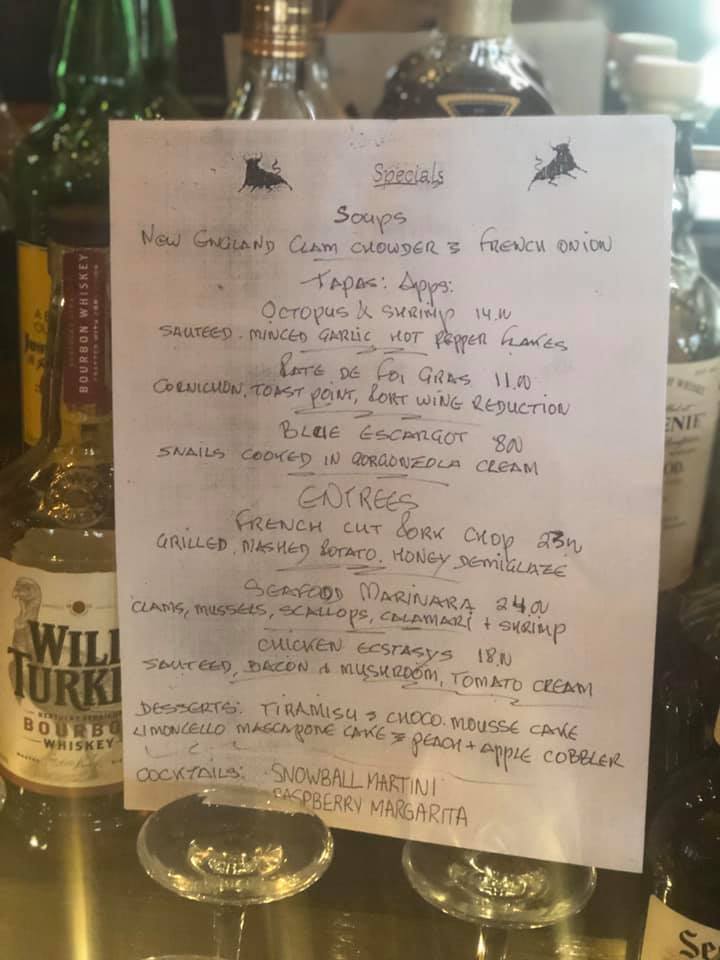 Specials
Soups
NEW ENGLAND CLAM CHOWDER & FRENCH ONION
TAPAS: APPS:
OCTOPUS & SHRIMP 14.00
SAUTEED. MINCED GARLIC HOT PEPPER FLAKES
PATE DE FOI GRAS 11.00
CORNICHON, TOAST POINT, PORT WINE REDUCTION
BLUE ESCARGOT 8.00
SNAILS COOKED IN GORGONZOLA CREAM
ENTREES
FRENCH CUT PORK CHOP 23.00
GRILLED, MASHED POTATO. HONEY DEMIGLAZE
SEAFOOD MARINARA 24.00
CLAMS, MUSSELS, SCALLOPS, CALAMARI + SHRIMP
CHICKEN ECSTASYS 18.00
SAUTEED, BACON & MUSHROOM, TOMATO CREAM
DESSERTS: TIRAMISU & CHOCO. MOUSSE CAKE
LIMONCELLO MASCAPONE CAKE & PEACH + APPLE COBBLER
COCKTAILS: SNOWBALL MARTINI
RASPBERRY MARGARITA
BOURBON WHISKEY
WILD
TURKE
BOURBO
WHISKEY
WHISKY
ENIE
Se